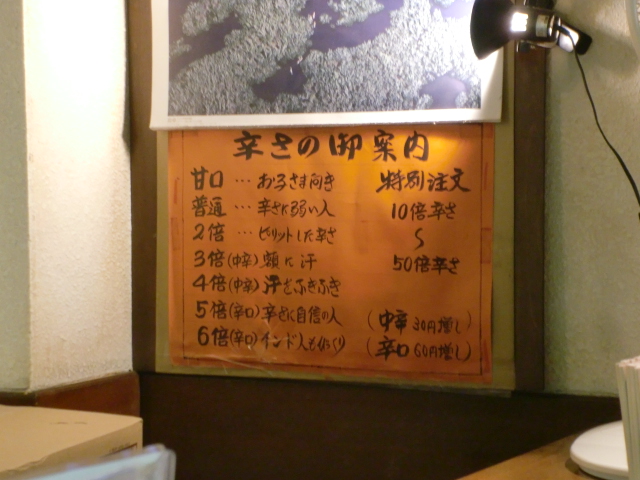 辛さの御案内
甘口 … お子さま向き
普通 … 辛さに弱い人
2倍 … ピリッとした辛さ
3倍(中辛) 額に汗
4倍(中辛) 汗をふきふき
5倍(辛口) 辛さに自信の人
6倍(辛口) インド人もびっくり
特別注文
10倍辛さ
〜
50倍辛さ
(中辛 30円増し)
(辛口 60円増し)